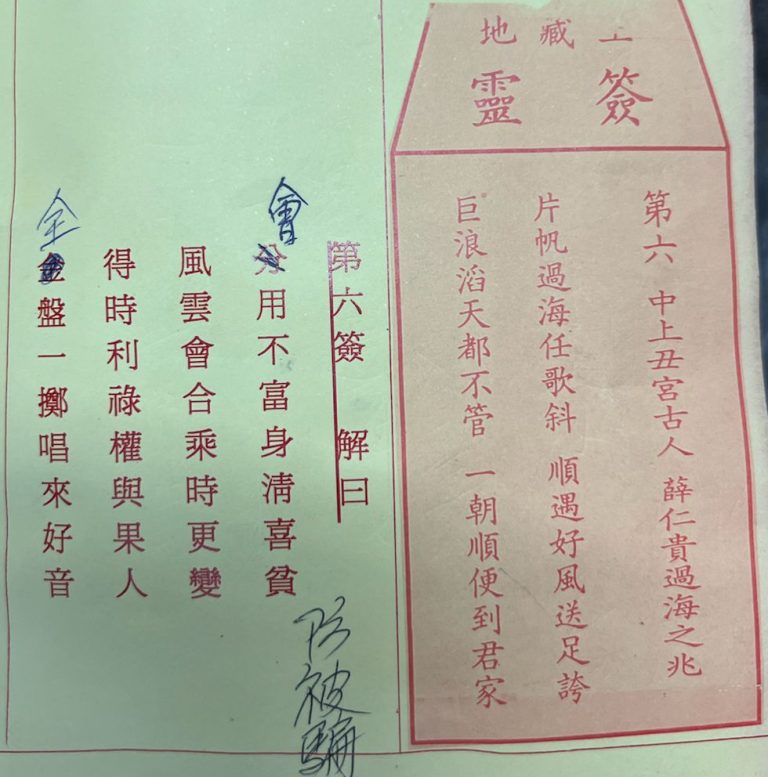 地藏王
靈簽
第六 中上丑宮古人 薛仁貴過海之兆
片帆過海任歌斜 順遇好風送足誇
巨浪滔天都不管 一朝順便到君家
第六簽 解曰
會
分用不富身清喜貧
風雲會合乘時更變
得時利祿權與果人
全
金盤一擲唱來好音
防被騙